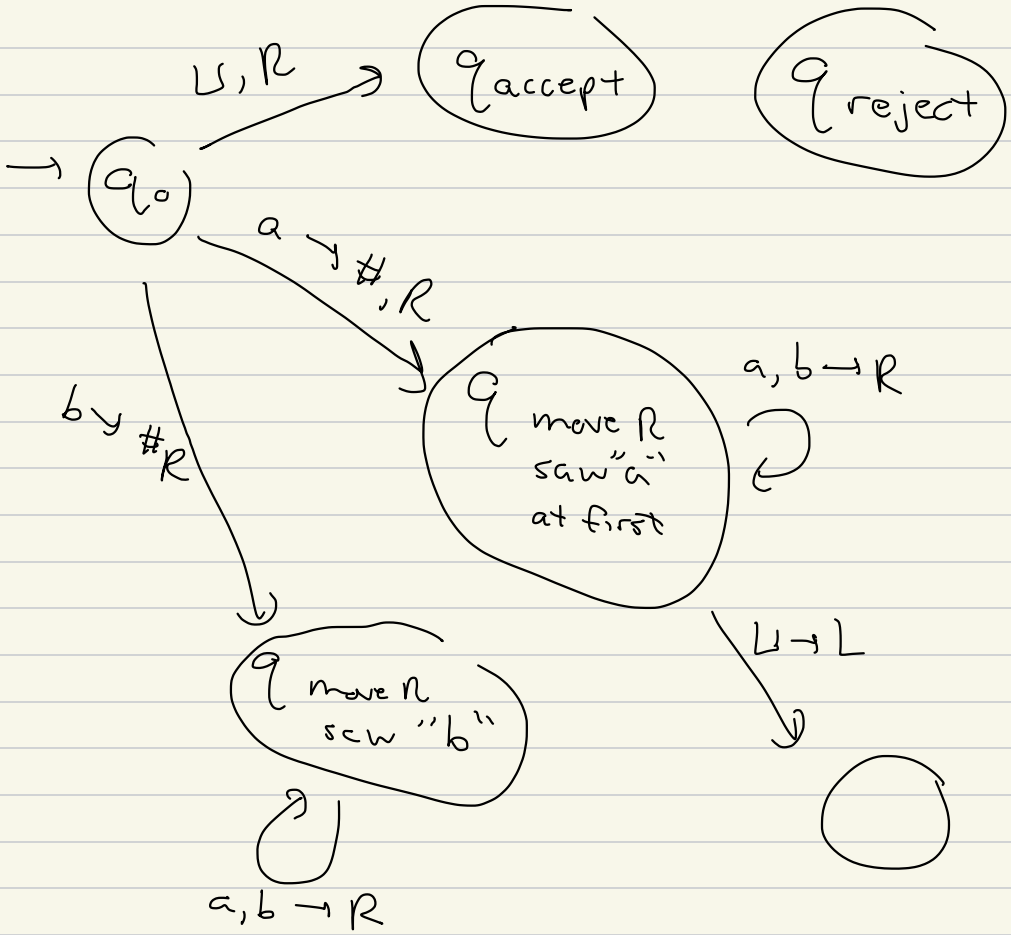 ⊔, R
q accept
q reject
→ q₀
a → #, R
b → # R
q move R
saw "a"
at first
a, b → R
⊔ → L
q move R
saw "b"
a, b → R